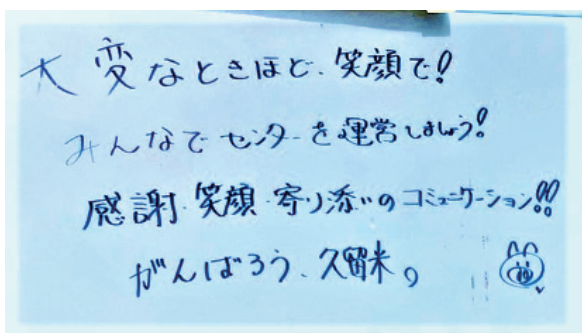 大変なときほど、笑顔で!
みんなでセンターを運営しましょう!
感謝・笑顔・寄り添いのコミュニケーション!!
がんばろう、久留米。